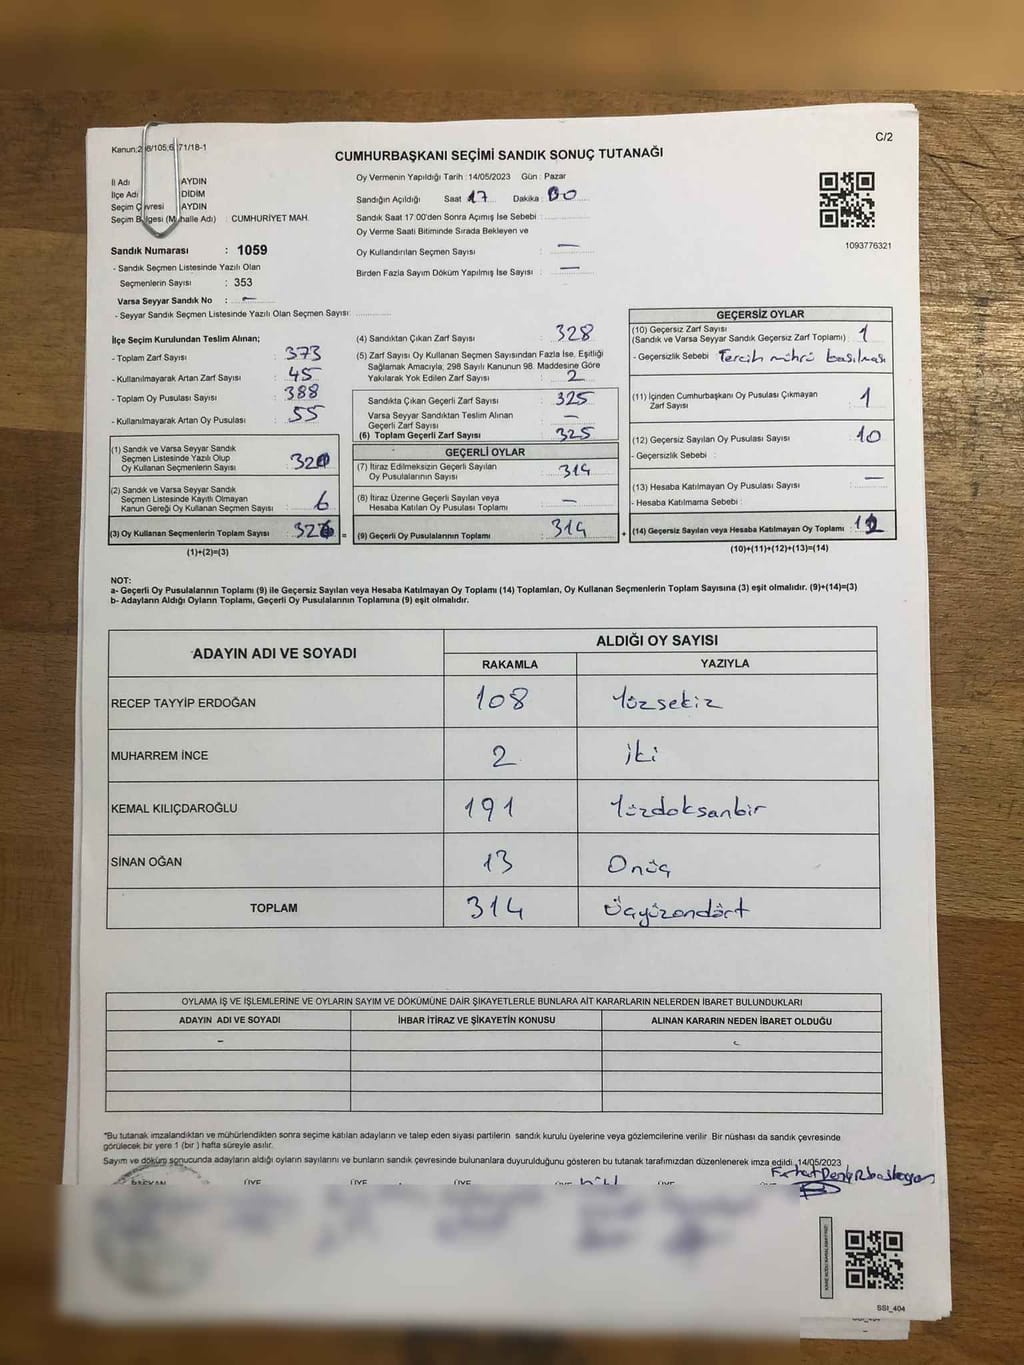 C/2
71/18-1
CUMHURBAŞKANI SEÇİMİ SANDIK SONUÇ TUTANAĞI
İl Adı AYDIN
İlçe Adı DİDİM
Seçim AYDIN
Seçim : CUMHURİYET MAH.
Sandık Numarası : 1059
- Sandık Seçmen Listesinde Yazılı Olan
Seçmenlerin Sayısı : 353
Varsa Seyyar Sandık No : –
- Seyyar Sandık Seçmen Listesinde Yazılı Olan Seçmen Sayısı:
Oy Vermenin Yapıldığı Tarih : 14/05/2023 Gün : Pazar
Sandığın Açıldığı Saat 17 Dakika :
Sandık Saat 17:00'den Sonra Açımış İse Sebebi :
Oy Verme Saati Bitiminde Sırada Bekleyen ve
Oy Kullandırılan Seçmen Sayısı : –
Birden Fazla Sayım Döküm Yapılmış İse Sayısı : –
1093776321
İlçe Seçim Kurulundan Teslim Alınan;
- Toplam Zarf Sayısı : 373
- Kullanılmayarak Artan Zarf Sayısı : 45
- Toplam Oy Pusulası Sayısı : 388
- Kullanılmayarak Artan Oy Pusulası : 55
(1) Sandık ve Varsa Seyyar Sandık
Seçmen Listesinde Yazılı Olup
Oy Kullanan Seçmenlerin Sayısı : 320
(2) Sandık ve Varsa Seyyar Sandık
Seçmen Listesinde Kayıtlı Olmayan
Kanun Gereği Oy Kullanan Seçmen Sayısı : 6
(3) Oy Kullanan Seçmenlerin Toplam Sayısı : 326 =
(1)+(2)=(3)
(4) Sandıktan Çıkan Zarf Sayısı : 328
(5) Zarf Sayısı Oy Kullanan Seçmen Sayısından Fazla İse, Eşitliği
Sağlamak Amacıyla, 298 Sayılı Kanunun 98. Maddesine Göre
Yakılarak Yok Edilen Zarf Sayısı : 2
Sandıkta Çıkan Geçerli Zarf Sayısı : 325
Varsa Seyyar Sandıktan Teslim Alınan
Geçerli Zarf Sayısı : –
(6) Toplam Geçerli Zarf Sayısı : 325
GEÇERLİ OYLAR
(7) İtiraz Edilmeksizin Geçerli Sayılan
Oy Pusulalarının Sayısı : 314
(8) İtiraz Üzerine Geçerli Sayılan veya
Hesaba Katılan Oy Pusulası Toplamı : –
(9) Geçerli Oy Pusulalarının Toplamı : 314 +
GEÇERSİZ OYLAR
(10) Geçersiz Zarf Sayısı
(Sandık ve Varsa Seyyar Sandık Geçersiz Zarf Toplamı) : 1
- Geçersizlik Sebebi : Tercih mührü basılması
(11) İçinden Cumhurbaşkanı Oy Pusulası Çıkmayan
Zarf Sayısı : 1
(12) Geçersiz Sayılan Oy Pusulası Sayısı : 10
- Geçersizlik Sebebi :
(13) Hesaba Katılmayan Oy Pusulası Sayısı : –
- Hesaba Katılmama Sebebi :
(14) Geçersiz Sayılan veya Hesaba Katılmayan Oy Toplamı : 12
(10)+(11)+(12)+(13)=(14)
NOT:
a- Geçerli Oy Pusulalarının Toplamı (9) ile Geçersiz Sayılan veya Hesaba Katılmayan Oy Toplamı (14) Toplamları, Oy Kullanan Seçmenlerin Toplam Sayısına (3) eşit olmalıdır. (9)+(14)=(3)
b- Adayların Aldığı Oyların Toplamı, Geçerli Oy Pusulalarının Toplamına (9) eşit olmalıdır.
ADAYIN ADI VE SOYADI ALDIĞI OY SAYISI
RAKAMLA YAZIYLA
RECEP TAYYİP ERDOĞAN 108 Yüzsekiz
MUHARREM İNCE 2 İki
KEMAL KILIÇDAROĞLU 191 Yüzdoksanbir
SİNAN OĞAN 13 Onüç
TOPLAM 314 Üçyüzondört
OYLAMA İŞ VE İŞLEMLERİNE VE OYLARIN SAYIM VE DÖKÜMÜNE DAİR ŞİKAYETLERLE BUNLARA AİT KARARLARIN NELERDEN İBARET BULUNDUKLARI
ADAYIN ADI VE SOYADI İHBAR İTİRAZ VE ŞİKAYETİN KONUSU ALINAN KARARIN NEDEN İBARET OLDUĞU
–
*Bu tutanak imzalandıktan ve mühürlendikten sonra seçime katılan adayların ve talep eden siyasi partilerin sandık kurulu üyelerine veya gözlemcilerine verilir. Bir nüshası da sandık çevresinde
görülecek bir yere 1 (bir ) hafta süreyle asılır.
Sayım ve döküm sonucunda adayların aldığı oyların sayılarını ve bunların sandık çevresinde bulunanlara duyurulduğunu gösteren bu tutanak tarafımızdan düzenlenerek imza edildi. 14/05/2023
BAŞKAN ÜYE ÜYE ÜYE ÜYE ÜYE
SSI_404